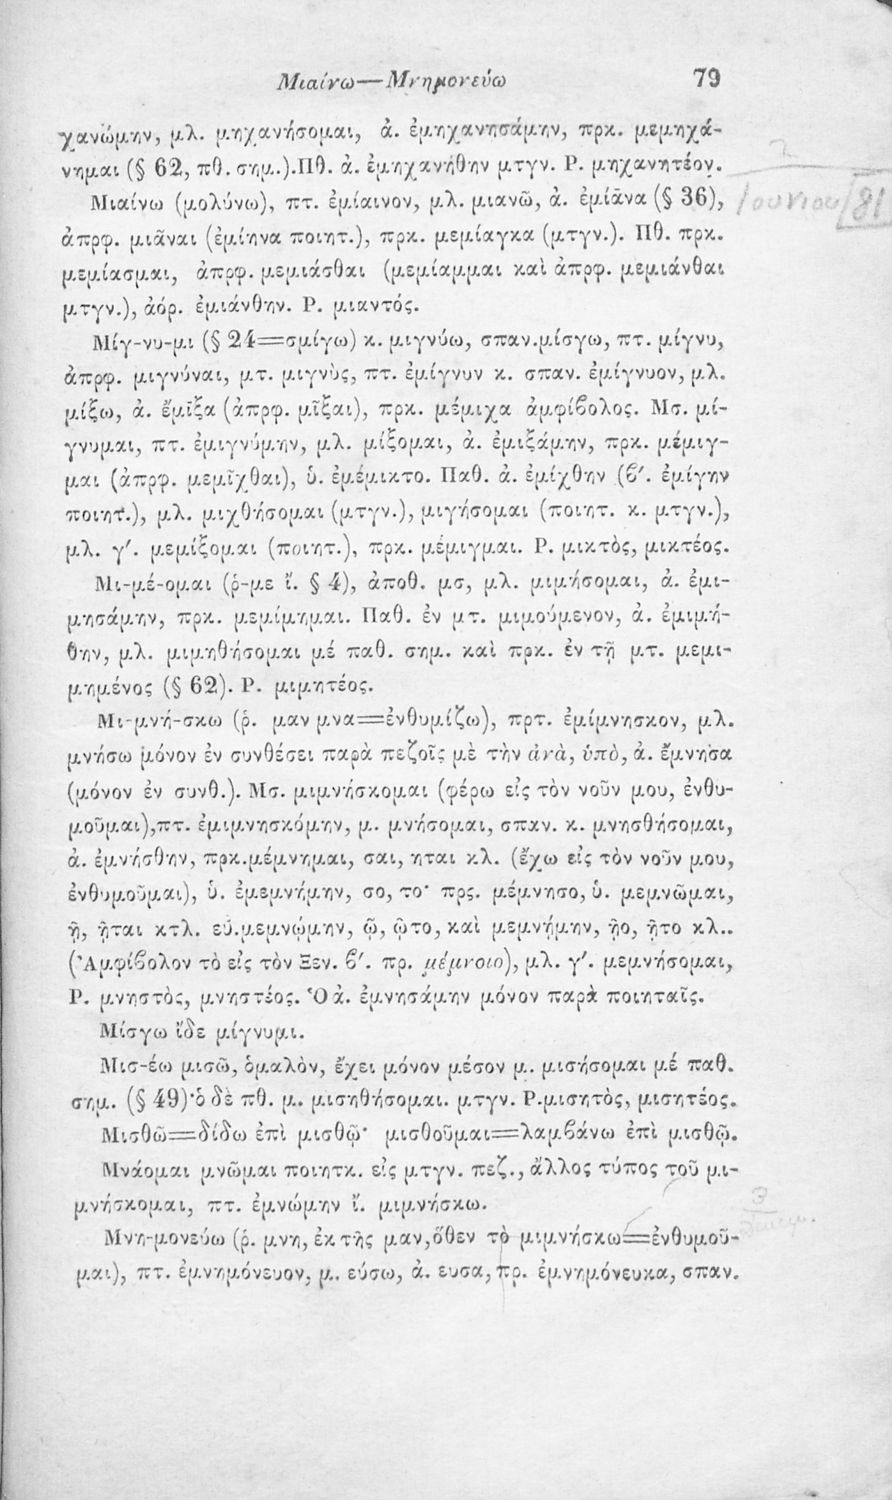 Μιαίνω—Μνημονεύω 79
χανώμην, μλ. μηχανήσομαι, ἀ. ἐμηχανησάμην, πρκ. μεμηχά-
νημαι (§ 62, πθ. σημ.).Πθ. ἀ. ἐμηχανήθην μτγν. Ρ. μηχανητέον.
Μιαίνω (μολύνω), πτ. ἐμίαινον, μλ. μιανῶ, ἀ. ἐμίᾱνα (§ 36),
Ιουνίου/81
ἀπρφ. μιᾶναι (ἐμίηνα ποιητ.), πρκ. μεμίαγκα (μτγν.). Πθ. πρκ.
μεμίασμαι, ἀπρφ. μεμιάσθαι (μεμίαμμαι καὶ ἀπρφ. μεμιάνθαι
μτγν.), ἀόρ. ἐμιάνθην. Ρ. μιαντός.
Μίγ-νυ-μι (§ 24=σμίγω) κ. μιγνύω, σπαν.μίσγω, πτ. μίγνυ,
ἀπρφ. μιγνύναι, μτ. μιγνὺς, πτ. ἐμίγνυν κ. σπαν. ἐμίγνυον, μλ.
μίξω, ἀ. ἔμῑξα (ἀπρφ. μῖξαι), πρκ. μέμιχα ἀμφίβολος. Μσ. μί-
γνυμαι, πτ. ἐμιγνύμην, μλ. μίξομαι, ἀ. ἐμιξάμην, πρκ. μέμιγ-
μαι (ἀπρφ. μεμῖχθαι), ὑ. ἐμέμικτο. Παθ. ἀ. ἐμίχθην (β′. ἐμίγην
ποιητ.), μλ. μιχθήσομαι (μτγν.), μιγήσομαι (ποιητ. κ. μτγν.),
μλ. γ′. μεμίξομαι (ποιητ.), πρκ. μέμιγμαι. Ρ. μικτὸς, μικτέος.
Μι-μέ-ομαι (ῥ-με ἴ. § 4), ἀποθ. μσ, μλ. μιμήσομαι, ἀ. ἐμι-
μησάμην, πρκ. μεμίμημαι. Παθ. ἐν μτ. μιμούμενον, ἀ. ἐμιμή-
θην, μλ. μιμηθήσομαι μέ παθ. σημ. καὶ πρκ. ἐν τῇ μτ. μεμι-
μημένος (§ 62). Ρ. μιμητέος.
Μι-μνή-σκω (ῥ. μαν μνα=ἐνθυμίζω), πρτ. ἐμίμνησκον, μλ.
μνήσω μόνον ἐν συνθέσει παρὰ πεζοῖς μὲ τὴν ἀνὰ, ὑπὸ, ἀ. ἔμνησα
(μόνον ἐν συνθ.). Μσ. μιμνήσκομαι (φέρω εἰς τὸν νοῦν μου, ἐνθυ-
μοῦμαι),πτ. ἐμιμνησκόμην, μ. μνήσομαι, σπαν. κ. μνησθήσομαι,
ἀ. ἐμνήσθην, πρκ.μέμνημαι, σαι, ηται κλ. (ἔχω εἰς τὸν νοῦν μου,
ἐνθυμοῦμαι), ὑ. ἐμεμνήμην, σο, το· πρς. μέμνησο, ὑ. μεμνῶμαι,
ῇ, ῆται κτλ. εὐ.μεμνῴμην, ῷ, ῷτο, καὶ μεμνῄμην, ῇο, ῇτο κλ..
(Ἀμφίβολον τὸ εἰς τὸν Ξεν. β′. πρ. μέμνοιο), μλ. γ′. μεμνήσομαι,
Ρ. μνηστὸς, μνηστέος. Ὁ ἀ. ἐμνησάμην μόνον παρὰ ποιηταῖς.
Μίσγω ἴδε μίγνυμι.
Μισ-έω μισῶ, ὁμαλὸν, ἔχει μόνον μέσον μ. μισήσομαι μέ παθ.
σημ. (§ 49)·ὁ δὲ πθ. μ. μισηθήσομαι. μτγν. Ρ.μισητὸς, μισητέος.
Μισθῶ=δίδω ἐπὶ μισθῷ· μισθοῦμαι=λαμβάνω ἐπὶ μισθῷ.
Μνάομαι μνῶμαι ποιητκ. εἰς μτγν. πεζ., ἄλλος τύπος τοῦ μι-
μνήσκομαι, πτ. ἐμνώμην ἴ. μιμνήσκω.
3
Μνη-μονεύω (ῥ. μνη, ἐκ τῆς μαν,ὅθεν τὸ μιμνήσκω=ἐνθυμοῦ-
μαι), πτ. ἐμνημόνευον, μ. εύσω, ἀ. ευσα, πρ. ἐμνημόνευκα, σπαν.